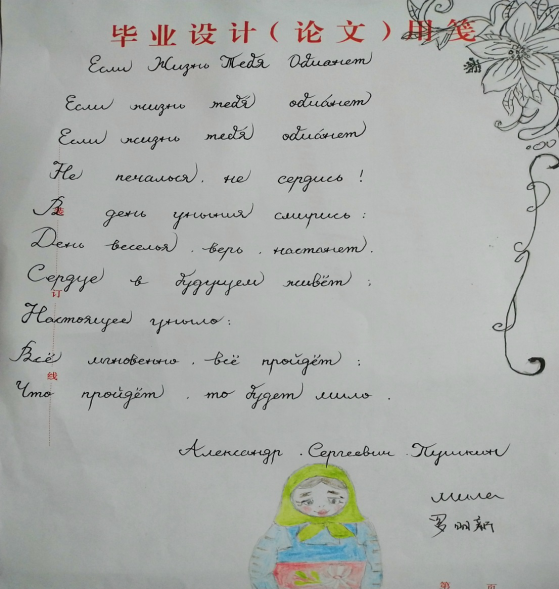 毕业设计（论文）用笺
Если Жизнь Тебя Обманет
Если жизнь тебя́ обма́нет
Если жизнь тебя́ обма́нет
Не печалься, не сердись!
В день уныния смирись:
День веселья, верь, настанет.
Сердце в будущем живёт;
Настоящее уныло:
Всё мгновенно, всё пройдёт;
Что пройдёт, то будет мило.
Александр. Сергеевич. Пушкин
Мила
装
订
线
第 页